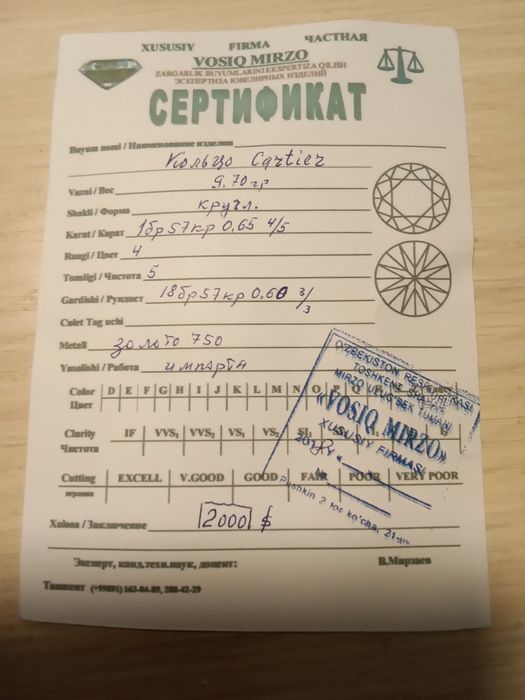 XUSUSIY FIRMA ЧАСТНАЯ
VOSIQ MIRZO
ZARGARLIK BUYUMLARINI EKSPERTIZA QILISH
ЭСКПЕРТИЗА ЮВЕЛИРНЫХ ИЗДЕЛИЙ
СЕРТИФИКАТ
Buyum nomi / Наименование изделия
Кольцо Cartier
Vazni / Вес 9,70 гр
Shakli / Форма кругл.
Karat / Карат 1бр57кр 0,65 4/5
Rangi / Цвет 4
Tomligi / Чистота 5
Gardishi / Рундист 18бр57кр 0.60 3/3
Culet Tag uchi
Metall золото 750
Yasalishi / Работа импарта
Color D E F G H I J K L M N O P
Цвет
Clarity IF VVS1 VVS2 VS1 VS2 SI1
Чистота
Cutting EXCELL V.GOOD GOOD FAIR POOR VERY POOR
огранка
O'ZBEKISTON RESPUBLIKASI
TOSHKENT SHAHAR
MIRZO ULUG'BEK TUMANI
«VOSIQ MIRZO»
XUSUSIY FIRMASI
Pushkin 2 tor ko'cha, 21-uy
Xulosa / Заключение 2000 $
Эксперт, канд.техн.наук, доцент: В.Мирзаев
Ташкент (+99891) 163-04-89, 288-42-29